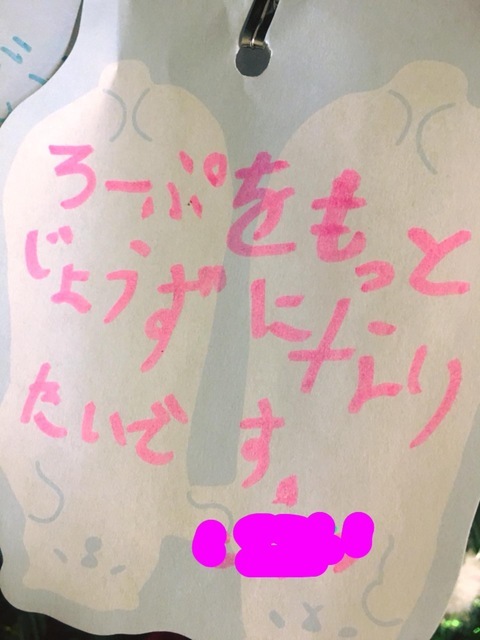 ろーぷをもっと
じょうずになり
たいです。